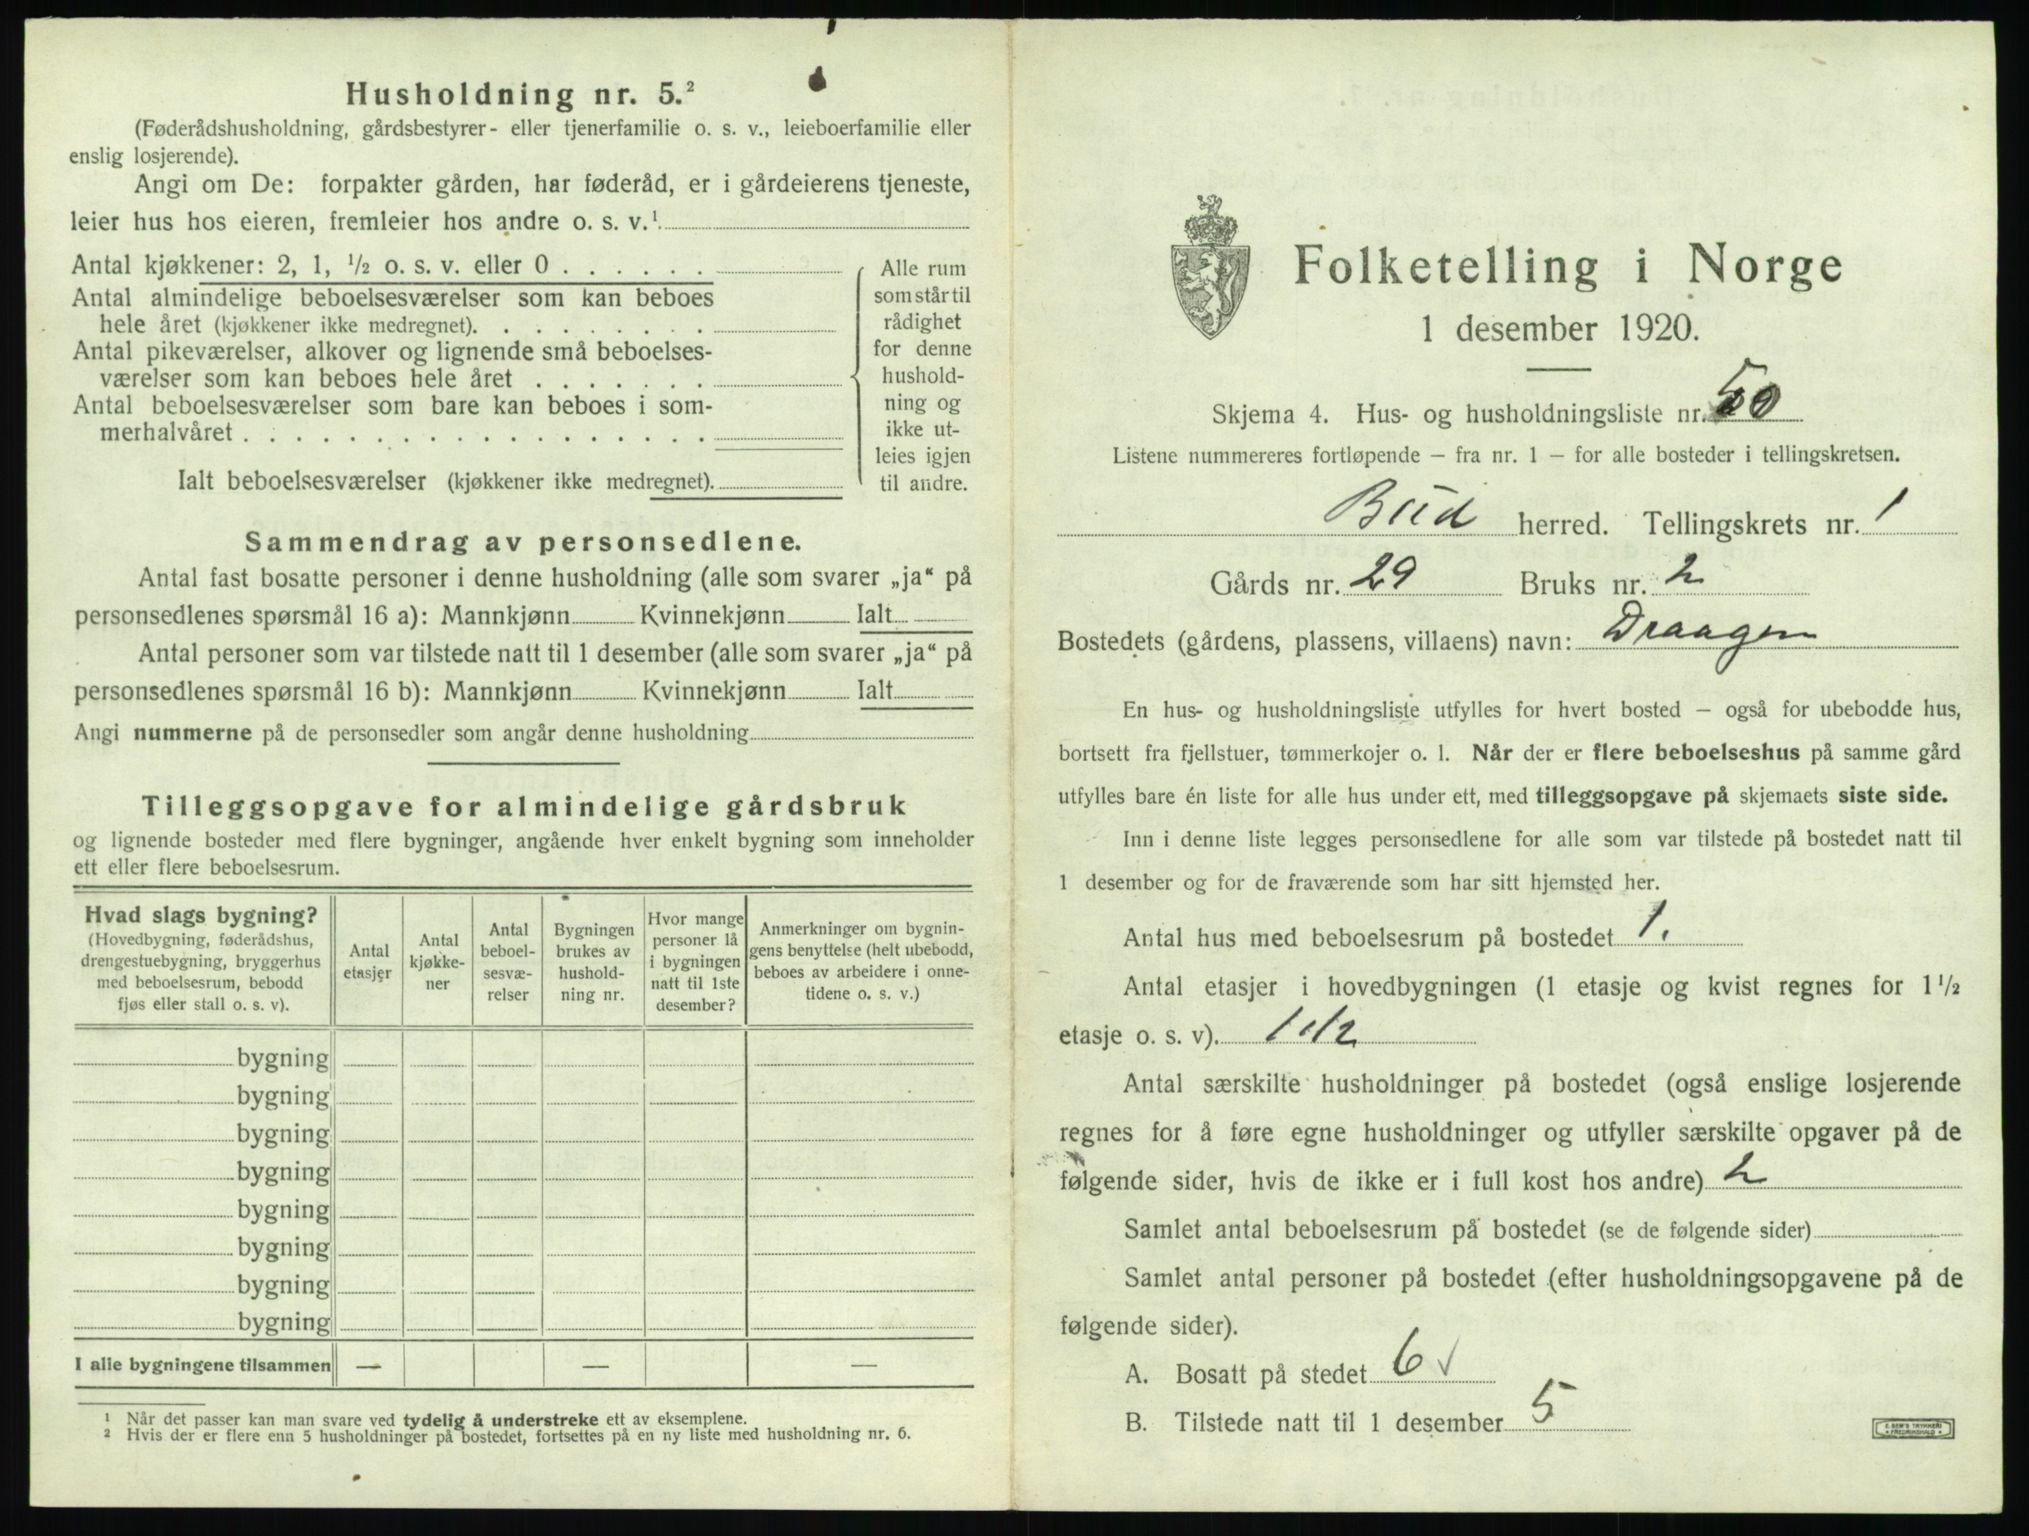 Husholdning nr. 5.²
(Føderådshusholdning, gårdsbestyrer- eller tjenerfamilie o. s. v., leieboerfamilie eller
enslig losjerende).
Angi om De: forpakter gården, har føderåd, er i gårdeierens tjeneste,
leier hus hos eieren, fremleier hos andre o. s. v.¹
Antal kjøkkener: 2, 1, ½ o. s. v. eller 0
Antal almindelige beboelsesværelser som kan beboes
hele året (kjøkkener ikke medregnet).
Antal pikeværelser, alkover og lignende små beboelses-
værelser som kan beboes hele året
Antal beboelsesværelser som bare kan beboes i som-
merhalvåret
Ialt beboelsesværelser (kjøkkener ikke medregnet).
Alle rum
som står til
rådighet
for denne
hushold-
ning og
ikke ut-
leies igjen
til andre.
Sammendrag av personsedlene.
Antal fast bosatte personer i denne husholdning (alle som svarer „ja“ på
personsedlenes spørsmål 16 a): Mannkjønn Kvinnekjønn Ialt
Antal personer som var tilstede natt til 1 desember (alle som svarer „ja“ på
personsedlenes spørsmål 16 b): Mannkjønn Kvinnekjønn Ialt
Angi nummerne på de personsedler som angår denne husholdning
Tilleggsopgave for almindelige gårdsbruk
og lignende bosteder med flere bygninger, angående hver enkelt bygning som inneholder
ett eller flere beboelsesrum.
Hvad slags bygning?
(Hovedbygning, føderådshus,
drengestuebygning, bryggerhus
med beboelsesrum, bebodd
fjøs eller stall o. s. v).
Antal
etasjer
Antal
kjøkke-
ner
Antal
beboel-
sesvæ-
relser
Bygningen
brukes av
hushold-
ning nr.
Hvor mange
personer lå
i bygningen
natt til 1ste
desember?
Anmerkninger om bygnin-
gens benyttelse (helt ubebodd,
beboes av arbeidere i onne-
tidene o. s. v.)
bygning
bygning
bygning
bygning
bygning
bygning
bygning
bygning
I alle bygningene tilsammen — — —
¹ Når det passer kan man svare ved tydelig å understreke ett av eksemplene.
² Hvis der er flere enn 5 husholdninger på bostedet, fortsettes på en ny liste med husholdning nr. 6.
Folketelling i Norge
1 desember 1920.
Skjema 4. Hus- og husholdningsliste nr. 50
Listene nummereres fortløpende – fra nr. 1 – for alle bosteder i tellingskretsen.
Bud herred. Tellingskrets nr. 1
Gårds nr. 29 Bruks nr. 2
Bostedets (gårdens, plassens, villaens) navn: Draagen
En hus- og husholdningsliste utfylles for hvert bosted – også for ubebodde hus,
bortsett fra fjellstuer, tømmerkojer o. l. Når der er flere beboelseshus på samme gård
utfylles bare én liste for alle hus under ett, med tilleggsopgave på skjemaets siste side.
Inn i denne liste legges personsedlene for alle som var tilstede på bostedet natt til
1 desember og for de fraværende som har sitt hjemsted her.
Antal hus med beboelsesrum på bostedet 1.
Antal etasjer i hovedbygningen (1 etasje og kvist regnes for 1½
etasje o. s. v). 1 1/2
Antal særskilte husholdninger på bostedet (også enslige losjerende
regnes for å føre egne husholdninger og utfyller særskilte opgaver på de
følgende sider, hvis de ikke er i full kost hos andre) 2
Samlet antal beboelsesrum på bostedet (se de følgende sider)
Samlet antal personer på bostedet (efter husholdningsopgavene på de
følgende sider).
A. Bosatt på stedet 6 ✓
B. Tilstede natt til 1 desember 5
E. SEM'S TRYKKERI
FREDRIKSHALD